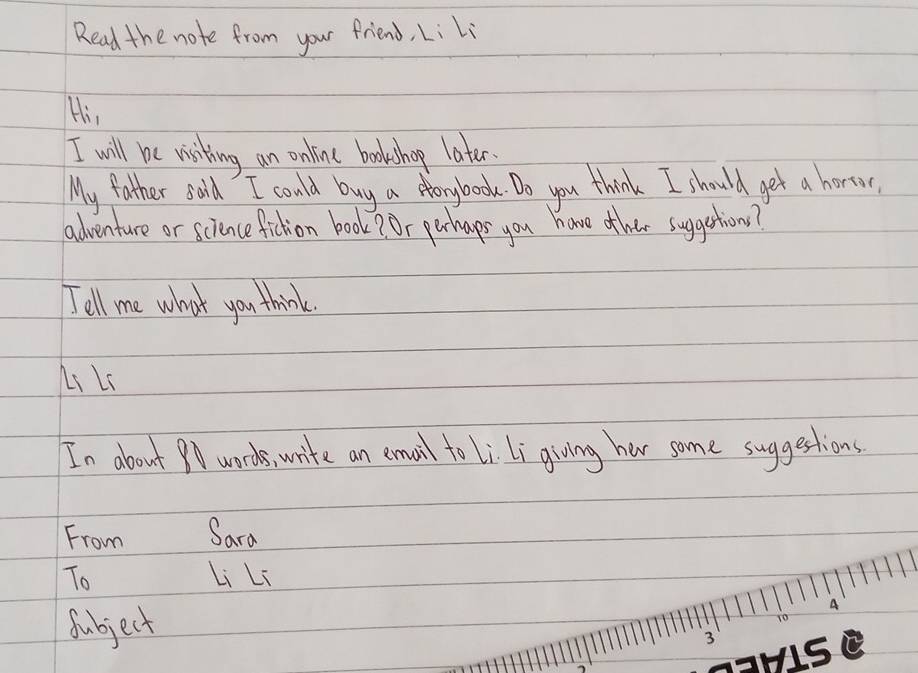 Read the note from your friend, Li Li
Hi,
I will be visiting an online bookshop later.
My father said I could buy a storybook. Do you think I should get a horror,
adventure or science fiction book? Or perhaps you have other suggestions?
Tell me what you think.
Li Li
In about 80 words, write an email to Li Li giving her some suggestions.
From Sara
To Li Li
Subject
2 3 10 4
STAED